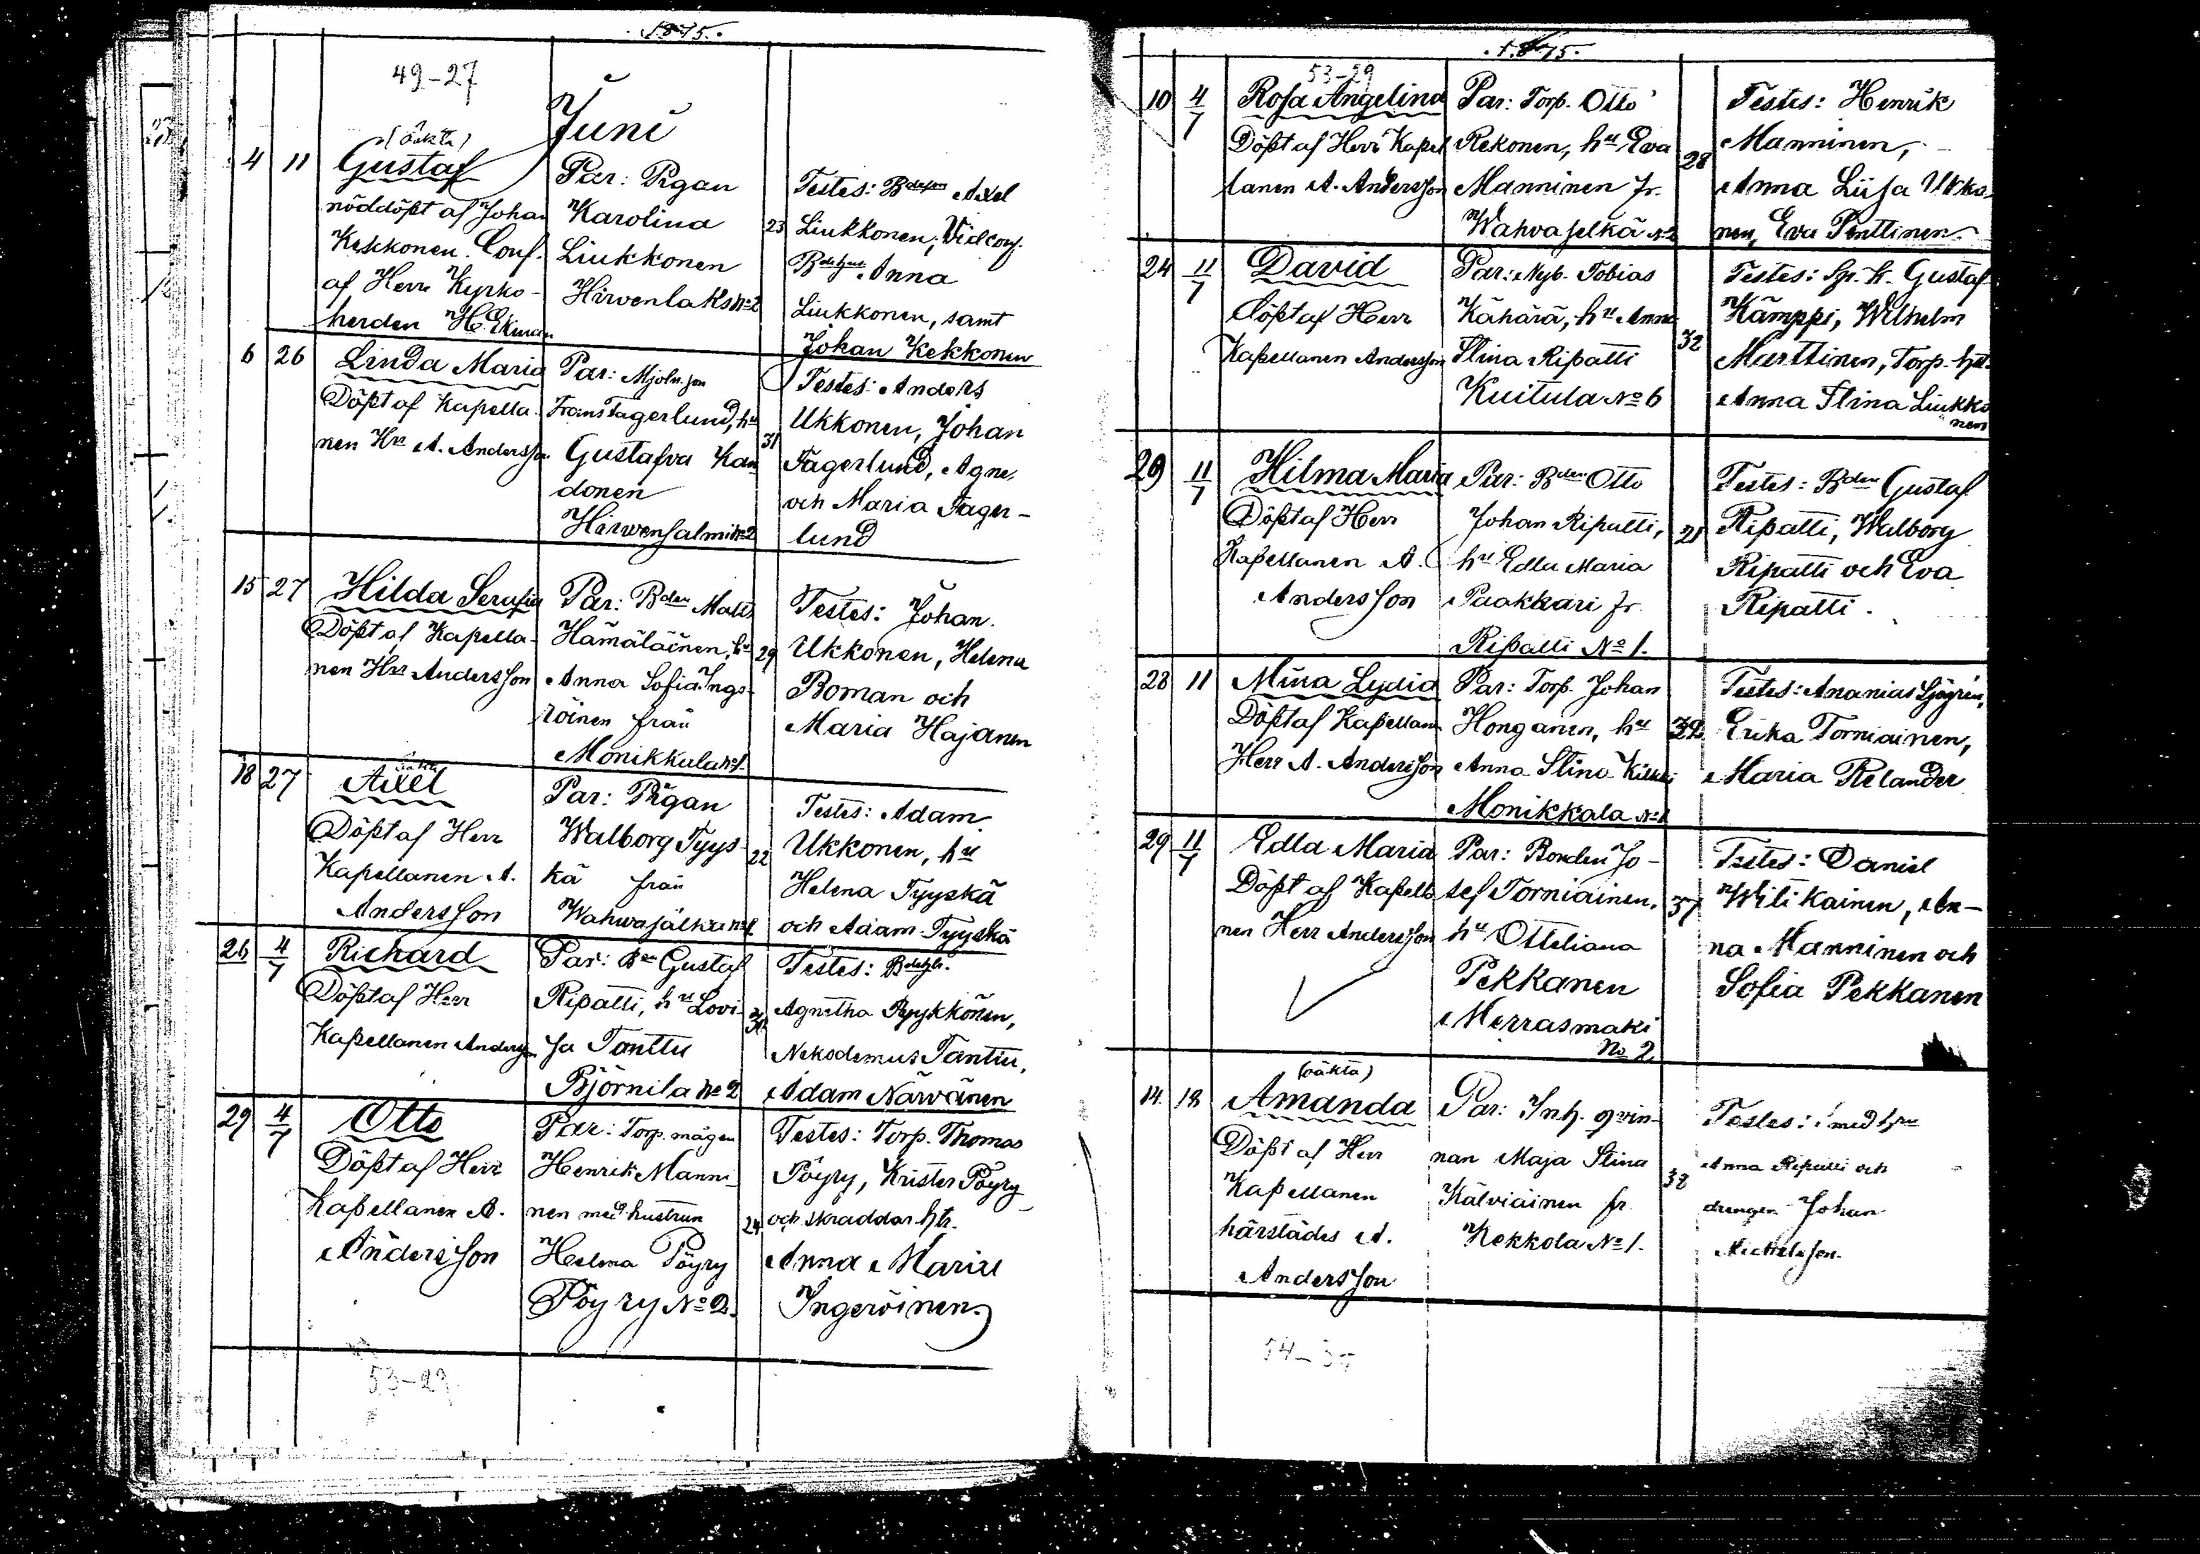 1875.
49-27
Juni
4 11
(oäkta)
Gustaf
nöddöpt af Johan
Kekkonen. Conf.
af Herr Kyrko-
herden H. Ekman
Par: Pigan
Karolina
Liukkonen
Hirvenlaks No 2
23
Testes: Axel
Liukkonen,
Anna
Liukkonen, samt
Johan Kekkonen
6 26
Linda Maria
Döpt af Kapella-
nen Hrr A. Andersson
Par:
Frans Fagerlund, hu
Gustafva Kan
donen
Hirvensalmi No 2
31
Testes: Anders
Ukkonen, Johan
Fagerlund, Agne,
och Maria Fager-
lund
15 27
Hilda Serafia
Döpt af Kapella-
nen Hrr Andersson
Par: Bden Matts
Hämäläinen, hu
Anna Sofia Inge
röinen från
Monikkala No 1.
29
Testes: Johan
Ukkonen, Helena
Boman och
Maria Hajanen
18 27
oäkta
Axel
Döpt af Herr
Kapellanen A.
Andersson
Par: Pigan
Walborg Tyys-
kä från
Wahwajälkä No 1
22
Testes: Adam
Ukkonen, hu
Helena Tyyskä
och Adam Tyyskä
26 4/7
Richard
Döpt af Herr
Kapellanen Andersson
Par: Bn Gustaf
Ripatti, hu Lovi-
sa Tanttu
Björnila No 2
Testes:
Agnetha Pyykkönen,
Nekodemus Tanttu,
Adam Närvänen
29 4/7
Otto
Döpt af Herr
Kapellanen A.
Andersson
Par: Torp. mågen
Henrik Manni-
nen med hustrun
Helma Pöyry
Pöyry No 2.
24
Testes: Torp. Thomas
Pöyry, Krister Pöyry
och skraddar. htr.
Anna Maria
Ingeröinen
53-29
1875.
53-29
10 4/7
Rosa Angelina
Döpt af Herr Kapel
lanen A. Andersson
Par: Torp. Otto
Rekonen, hu Eva
Manninen fr.
Wahvaselkä No
28
Testes: Henrik
Manninen,
Anna Liisa Ukko-
nen, Eva Penttinen
24 11/7
David
Döpt af Herr
Kapellanen Andersson
Par: Nyb. Tobias
Kähärä, hu Anna
Stina Ripatti
Kuitula No 6
32
Testes: Sp. k. Gustaf
Kämppi, Wilhelm
Marttinen, Torp. htr.
Anna Stina Liukko
nen
29 11/7
Hilma Maria
Döpt af Herr
Kapellanen A.
Andersson
Par: Bden Otto
Johan Ripatti,
hu Edla Maria
Paakkari fr.
Ripatti No 1.
21
Testes: Bden Gustaf
Ripatti, Walborg
Ripatti och Eva
Ripatti.
28 11
Mina Lydia
Döpt af Kapellan
Herr A. Andersson
Par: Torp. Johan
Honganen, hu
Anna Stina Kikki
Monikkala No 1
39
Testes: Ananias Sjögrén,
Erika Torniainen,
Maria Relander
29 11/7
Edla Maria
Döpt af Kapella
nen Herr Andersson
Par: Bonden Jo-
sef Torniainen,
hu Otteliana
Pekkanen
Merrasmäki
No 2
37
Testes: Daniel
Wilikainen, An-
na Manninen och
Sofia Pekkanen
14 18
(oäkta)
Amanda
Döpt af Herr
Kapellanen
härstädes A.
Andersson
Par: Inh. qvin-
nan Maja Stina
Kälviäinen fr.
Kekkola No 1.
32
Testes:
Anna Ripatti och
drengen Johan
Michelsson.